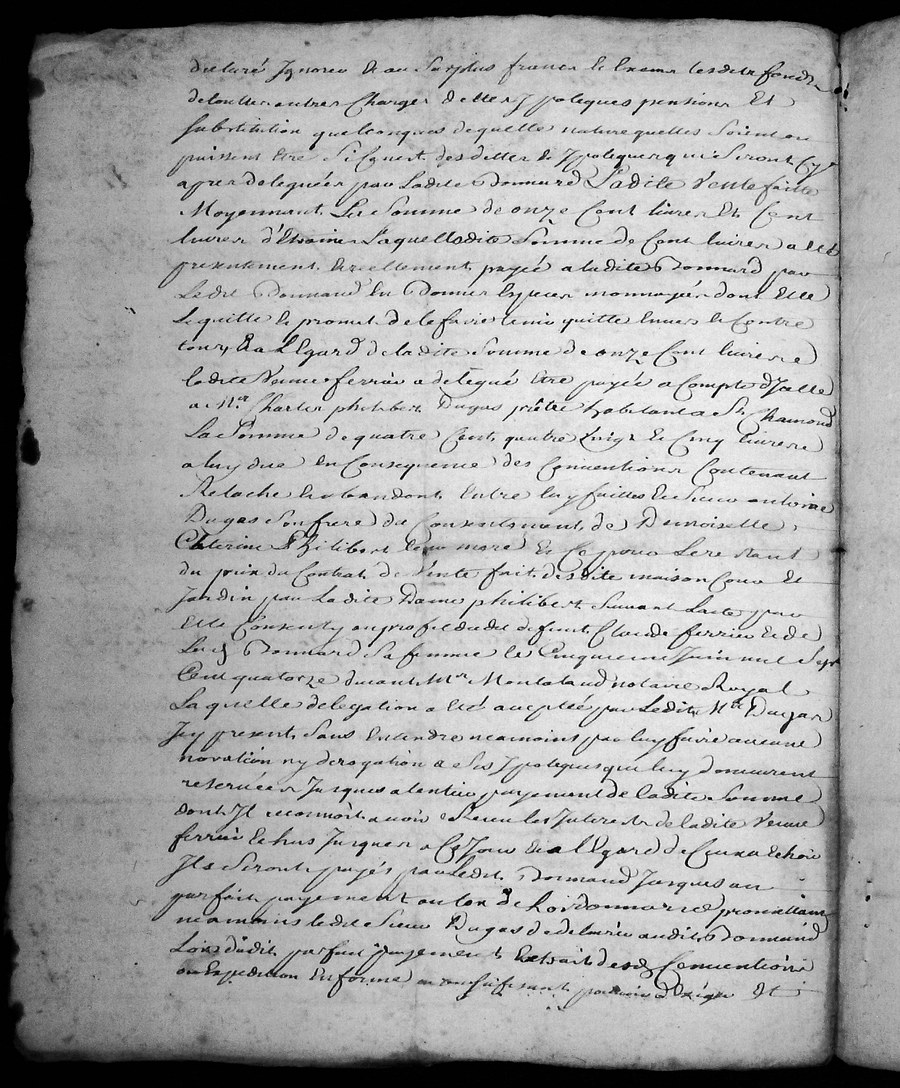 declaré Ignorer et au Surplus francs et Exems lesdits fonds
detouttes autres Charges dettes Ypoteques pensions Et
Substitution quelconques dequelle nature quelles Soient ou
puissent Etre Si Cquest des dettes et Ypoteques qui Seront Cy
apres deleguées par Ladite Bonnard Ladite Vente faitte
Moyennant La Somme de onze Cent livres Et Cent
livres d'Etraines Laquelle dite Somme de Cent livres a été
presentement Et reellement payée a ladite Bonnard par
Ledit Bonnard En Deniers Especes monnoyés dont Elle
Le quitte Et promet de le faire tenir quitte Envers Et Contre
tous Et a l Egard de ladite Somme de onze Cent livres
ladite Veuve ferrier a delegué Etre payée a Compte d'Jcelle
a Mre Charles philibert Dugas prêtre habitant a St Chamond
La Somme de quatre Cent quatre Vingt Et Cinq livres
a luy due En Consequence des Conventions Contenant
Relache Et abandont Entre luy faittes Et Sieur antoine
Dugas Son frere du Consentement de Demoiselle
Catérine Philibert leur mere Et Ce pour Le restant
du prix du Contrat de Vente fait desdite maison Cour Et
Jardin par Ladite Dame philibert Suivant Lacte par
Elle Consenty au profit dudit defunt Claude ferrier Et de
Bonnard Sa femme le Cinquieme Juin mil Sept
Cent quatorze devant Mre Montaland notaire Royal
La quelle delegation a Eté acceptée par Ledit Mre Dugas
Jcy present Sans Entendre neamoins par luy faire aucune
novation ny derogation a Ses Ypoteques qui luy demeurent
reservées Jusques a lentier payement de ladite Somme
dont Jl reconnoit avoir Receu les Interets de ladite Veuve
ferrier Echus Jusques a Ce Jour Et a l Egard de Ceux a Echoir
Jls Seront payés par Ledit Bonnard Jusques au
parfait payement au taux de Lordonnance promettant
neamoins ledit Sieur Dugas de delivrer audit Bonnard
Lors dudit parfait payement Extrait desd Conventions
ou Expedition En forme Et